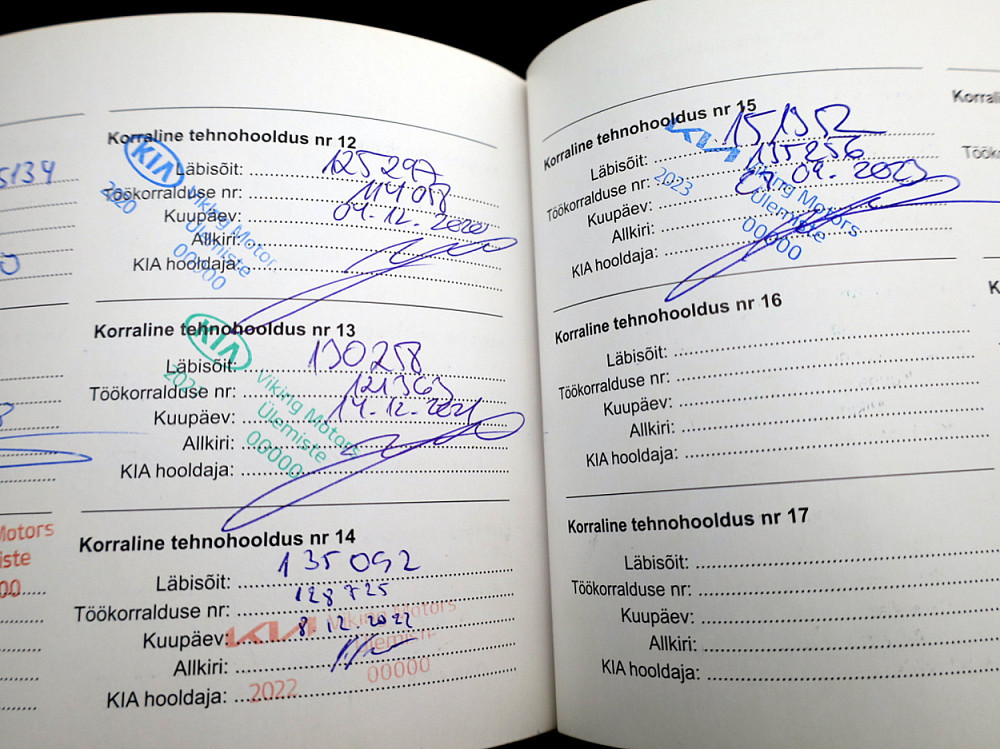 5134
0
3
Motors
iste
00
Korraline tehnohooldus nr 12
KIA
2020
Läbisõit: 125297
Töökorralduse nr: 114058
Kuupäev: 04.12.2020
Allkiri:
KIA hooldaja:
Viking Motor
Ülemiste
00000
Korraline tehnohooldus nr 13
KIA
Läbisõit: 130258
Töökorralduse nr: 121363
Kuupäev: 14.12.2021
Allkiri:
KIA hooldaja:
Viking Motors
Ülemiste
00000
Korraline tehnohooldus nr 14
Läbisõit: 135092
Töökorralduse nr: 128725
Kuupäev: 8 12 2022
Allkiri:
KIA hooldaja:
KIA
Viking Motors
Ülemiste
2022
00000
Korraline tehnohooldus nr 15
KIA
2023
Läbisõit: 151352
Töökorralduse nr: 135256
Kuupäev: 09.2023
Allkiri:
KIA hooldaja:
Viking Motors
Ülemiste
00000
Korraline tehnohooldus nr 16
Läbisõit:
Töökorralduse nr:
Kuupäev:
Allkiri:
KIA hooldaja:
Korraline tehnohooldus nr 17
Läbisõit:
Töökorralduse nr:
Kuupäev:
Allkiri:
KIA hooldaja:
Korrali
Töök
K